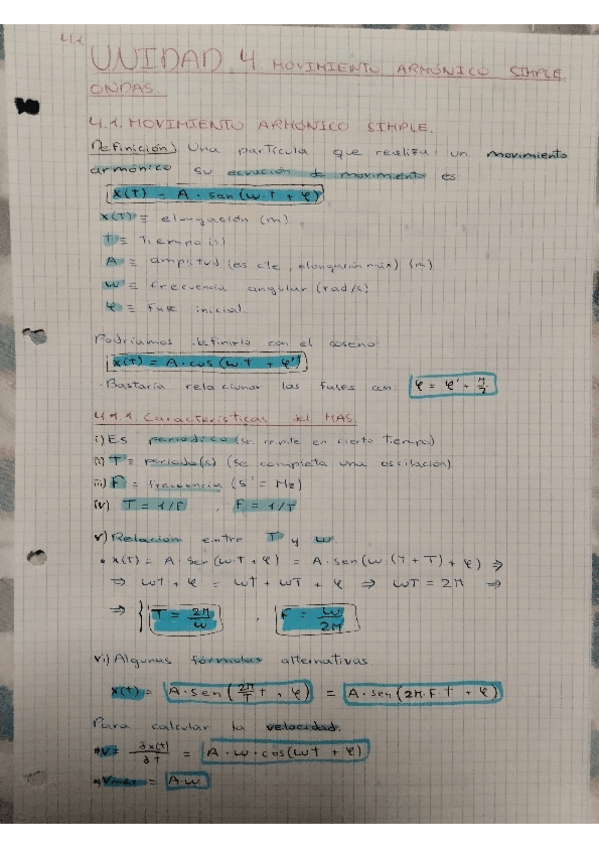 4.1
UNIDAD 4 MOVIMIENTO ARMÓNICO SIMPLE.
ONDAS.
4.1. MOVIMIENTO ARMÓNICO SIMPLE.
Definición) Una partícula que realiza un movimiento
armónico su ecuación de movimiento es
x(t) = A · sen (w · t + φ)
x(t) ≡ elongación (m)
t ≡ Tiempo (s)
A ≡ amplitud (es cte, elongación máx) (m)
w ≡ frecuencia angular (rad/s)
φ ≡ fase inicial.
Podríamos definirlo con el coseno:
x(t) = A · cos (w·t + φ')
· Bastaría relacionar las fases con: φ = φ' + π/2
4.1.1. Características del MAS.
i) Es periódico (se repite en cierto tiempo)
ii) T = periodo (s) (se completa una oscilación)
iii) F = frecuencia (s⁻¹ = Hz)
iv) T = 1/F , F = 1/T
v) Relación entre T y w.
• x(t) = A · Sen (w·t + φ) = A · sen (w · (t + T) + φ) ⇒
⇒ wt + φ = wt + wT + φ ⇒ wT = 2π ⇒
⇒ { T = 2π/w , F = w/2π
vi) Algunas fórmulas alternativas
x(t) = A · sen (2π/T t + φ) = A · sen (2π · F · t + φ)
Para calcular la velocidad.
v = dx(t)/dt = A · w · cos (wt + φ)
Vmáx = A·w